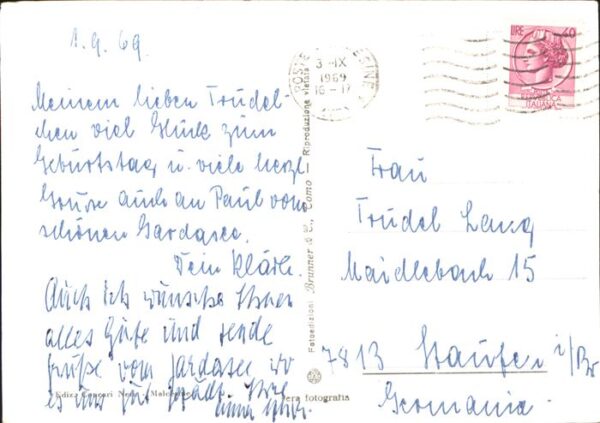 1.9.69.
Meinem lieben Trudel-
chen viel Glück zum
Geburtstag u. viele herzl.
Grüsse auch an Paul vom
schönen Gardasee.
Dein Klärle.
Auch ich wünsche Ihnen
alles Gute und sende
Grüße vom Gardasee wo
es uns gut gefällt. Ihre
POSTE
3-IX
1969
16-17
LIRE 40
REPUBBLICA
ITALIANA
Frau
Trudel Lang
Maidlebach 15
7813 Staufen i/Br
Germania
Fotoedizioni Brunner & C., Como — Riproduzione vietata
Vera fotografia